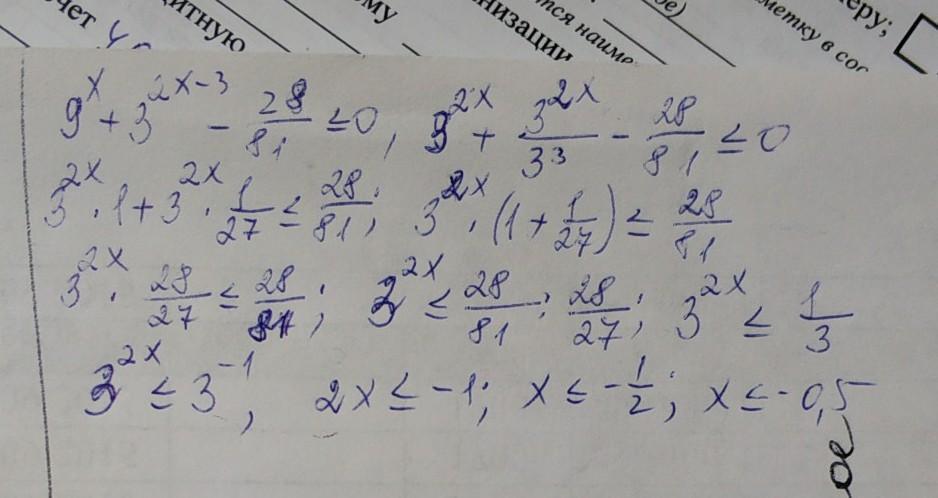 чет
щитную
ому
низации
тся наиме
ое)
метку в сос
еру;
9^x + 3^{2x-3} - 28/81 ≤ 0, 9^{2x} + 3^{2x}/3^3 - 28/81 ≤ 0
3^{2x} · 1 + 3^{2x} · 1/27 ≤ 28/81; 3^{2x} · (1 + 1/27) ≤ 28/81
3^{2x} · 28/27 ≤ 28/81; 3^{2x} ≤ 28/81 : 28/27; 3^{2x} ≤ 1/3
3^{2x} ≤ 3^{-1}, 2x ≤ -1; x ≤ -1/2; x ≤ -0,5
ое